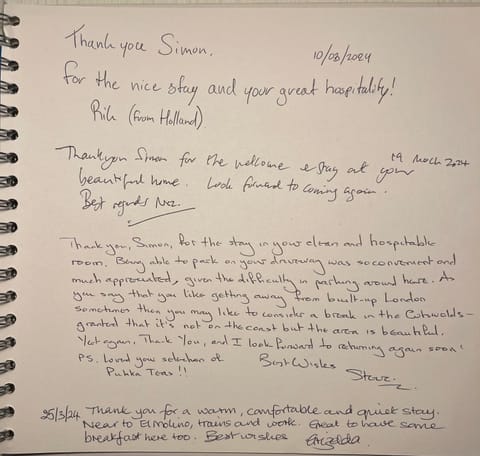 Thank you Simon.
10/03/2024
for the nice stay and your great hospitality!
Rik (from Holland)
Thankyou Simon for the welcome & stay at your
19 March 2024
beautiful home. Look forward to coming again.
Best regards
Thank you, Simon, for the stay in your clean and hospitable
room. Being able to park on your driveway was so convenient and
much appreciated, given the difficulty in parking around here. As
you say that you like getting away from built-up London
sometimes then you may like to consider a break in the Cotswolds -
granted that it's not on the coast but the area is beautiful.
Yet again, Thank You, and I look forward to returning again soon!
PS. Loved your selection of
Pukka Teas!!
Best Wishes
Steve.
25/3/24 Thank you for a warm, comfortable and quiet stay.
Near to El Molino, trains and work. Great to have some
breakfast here too. Best wishes Grizelda.